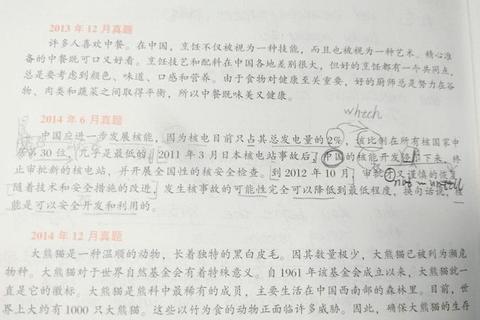 2013年12月真题
许多人喜欢中餐。在中国，烹饪不仅被视为一种技能，而且也被视为一种艺术。精心准
备的中餐既可口又好看。烹饪技艺和配料在中国各地差别很大，但好的烹饪都有一个共同点，
总是要考虑到颜色、味道、口感和营养。由于食物对健康至关重要，好的厨师总是努力在谷
物、肉类和蔬菜之间取得平衡，所以中餐既味美又健康。
which
2014年6月真题
中国应进一步发展核能，因为核电目前只占其总发电量的2%，该比例在所有核国家中
居第30位，几乎是最低的。2011年3月日本核电站事故后，中国的核能开发停了下来，终
止审批新的核电站，并开展全国性的核安全检查。到2012年10月，审批又谨慎的恢复
not until
随着技术和安全措施的改进，发生核事故的可能性完全可以降低到最低程度，换句话说，核
能是可以安全开发和利用的。
2014年12月真题
大熊猫是一种温顺的动物，长着独特的黑白皮毛。因其数量极少，大熊猫已被列为濒危
物种。大熊猫对于世界自然基金会有着特殊意义。自1961年该基金会成立以来，大熊猫就一
直是它的徽标。大熊猫是熊科中最稀有的成员，主要生活在中国西南部的森林里。目前，世
界上大约有1000只大熊猫。这些以竹为食的动物正面临许多威胁。因此，确保大熊猫的生存